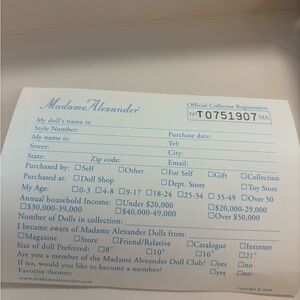 Madame Alexander® Official Collector Registration
Nº T0751907 MA
My doll's name is:
Style Number: Purchase date:
My name is: Tel:
Street: City:
State: Zip code: Email:
Purchased by: □Self □Other □For Self □Gift □Collection
Purchased at: □Doll Shop □Dept. Store □Toy Store
My Age: □0-3 □4-8 □9-17 □18-24 □25-34 □35-49 □Over 50
Annual household Income: □Under $20,000 □$20,000-29,000
□$30,000-39,000 □$40,000-49,000 □Over $50,000
Number of Dolls in collection:
I became aware of Madame Alexander Dolls from: □Catalogue □Internet
□Magazine □Store □Friend/Relative □16" □21"
Size of doll Preferred: □8" □10"
Are you a member of the Madame Alexander Doll Club? □yes □no
If no, would you like to become a member? □yes □no
Favorite themes:
www.madamealexander.com Copyright ©